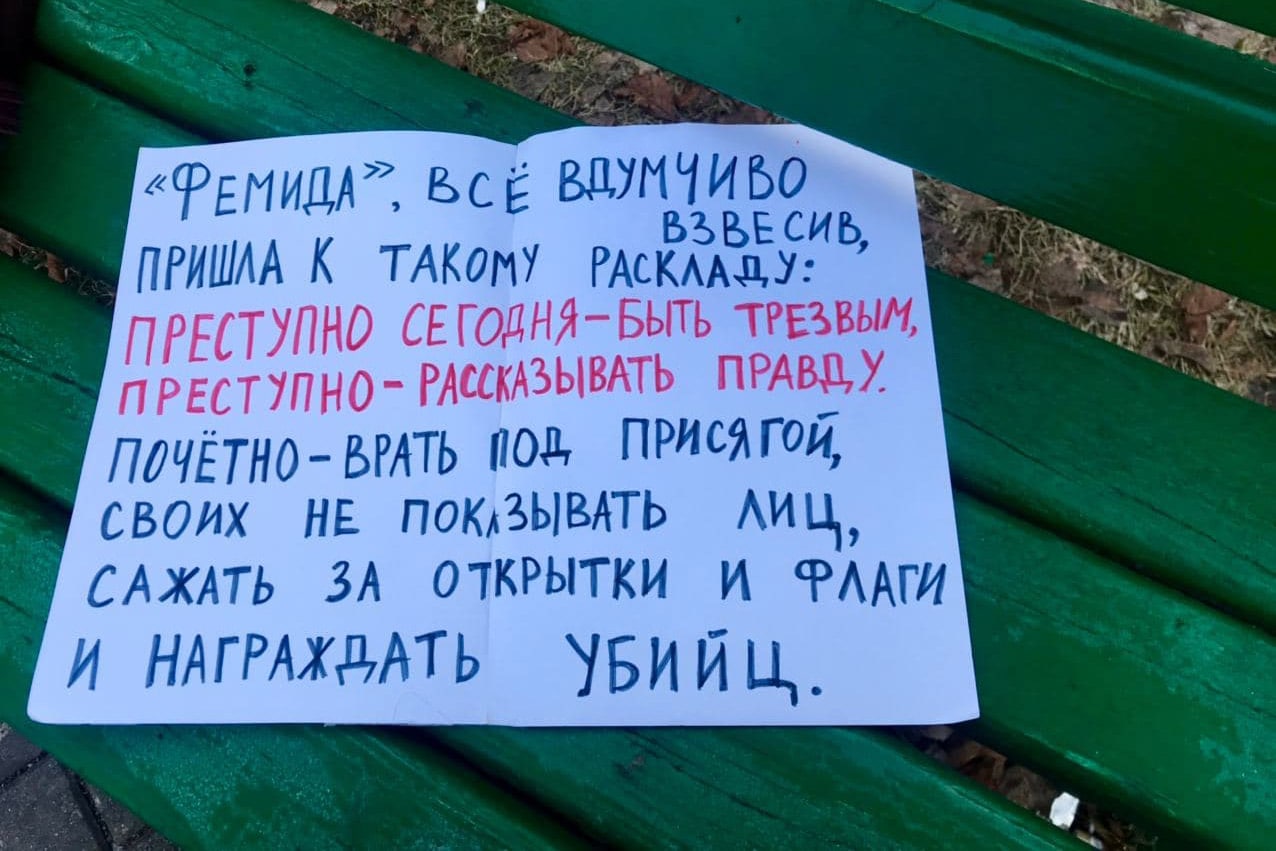 «ФЕМИДА», ВСЁ ВДУМЧИВО
ВЗВЕСИВ,
ПРИШЛА К ТАКОМУ РАСКЛАДУ:
ПРЕСТУПНО СЕГОДНЯ – БЫТЬ ТРЕЗВЫМ,
ПРЕСТУПНО – РАССКАЗЫВАТЬ ПРАВДУ.
ПОЧЁТНО – ВРАТЬ ПОД ПРИСЯГОЙ,
СВОИХ НЕ ПОКАЗЫВАТЬ ЛИЦ,
САЖАТЬ ЗА ОТКРЫТКИ И ФЛАГИ
И НАГРАЖДАТЬ УБИЙЦ.